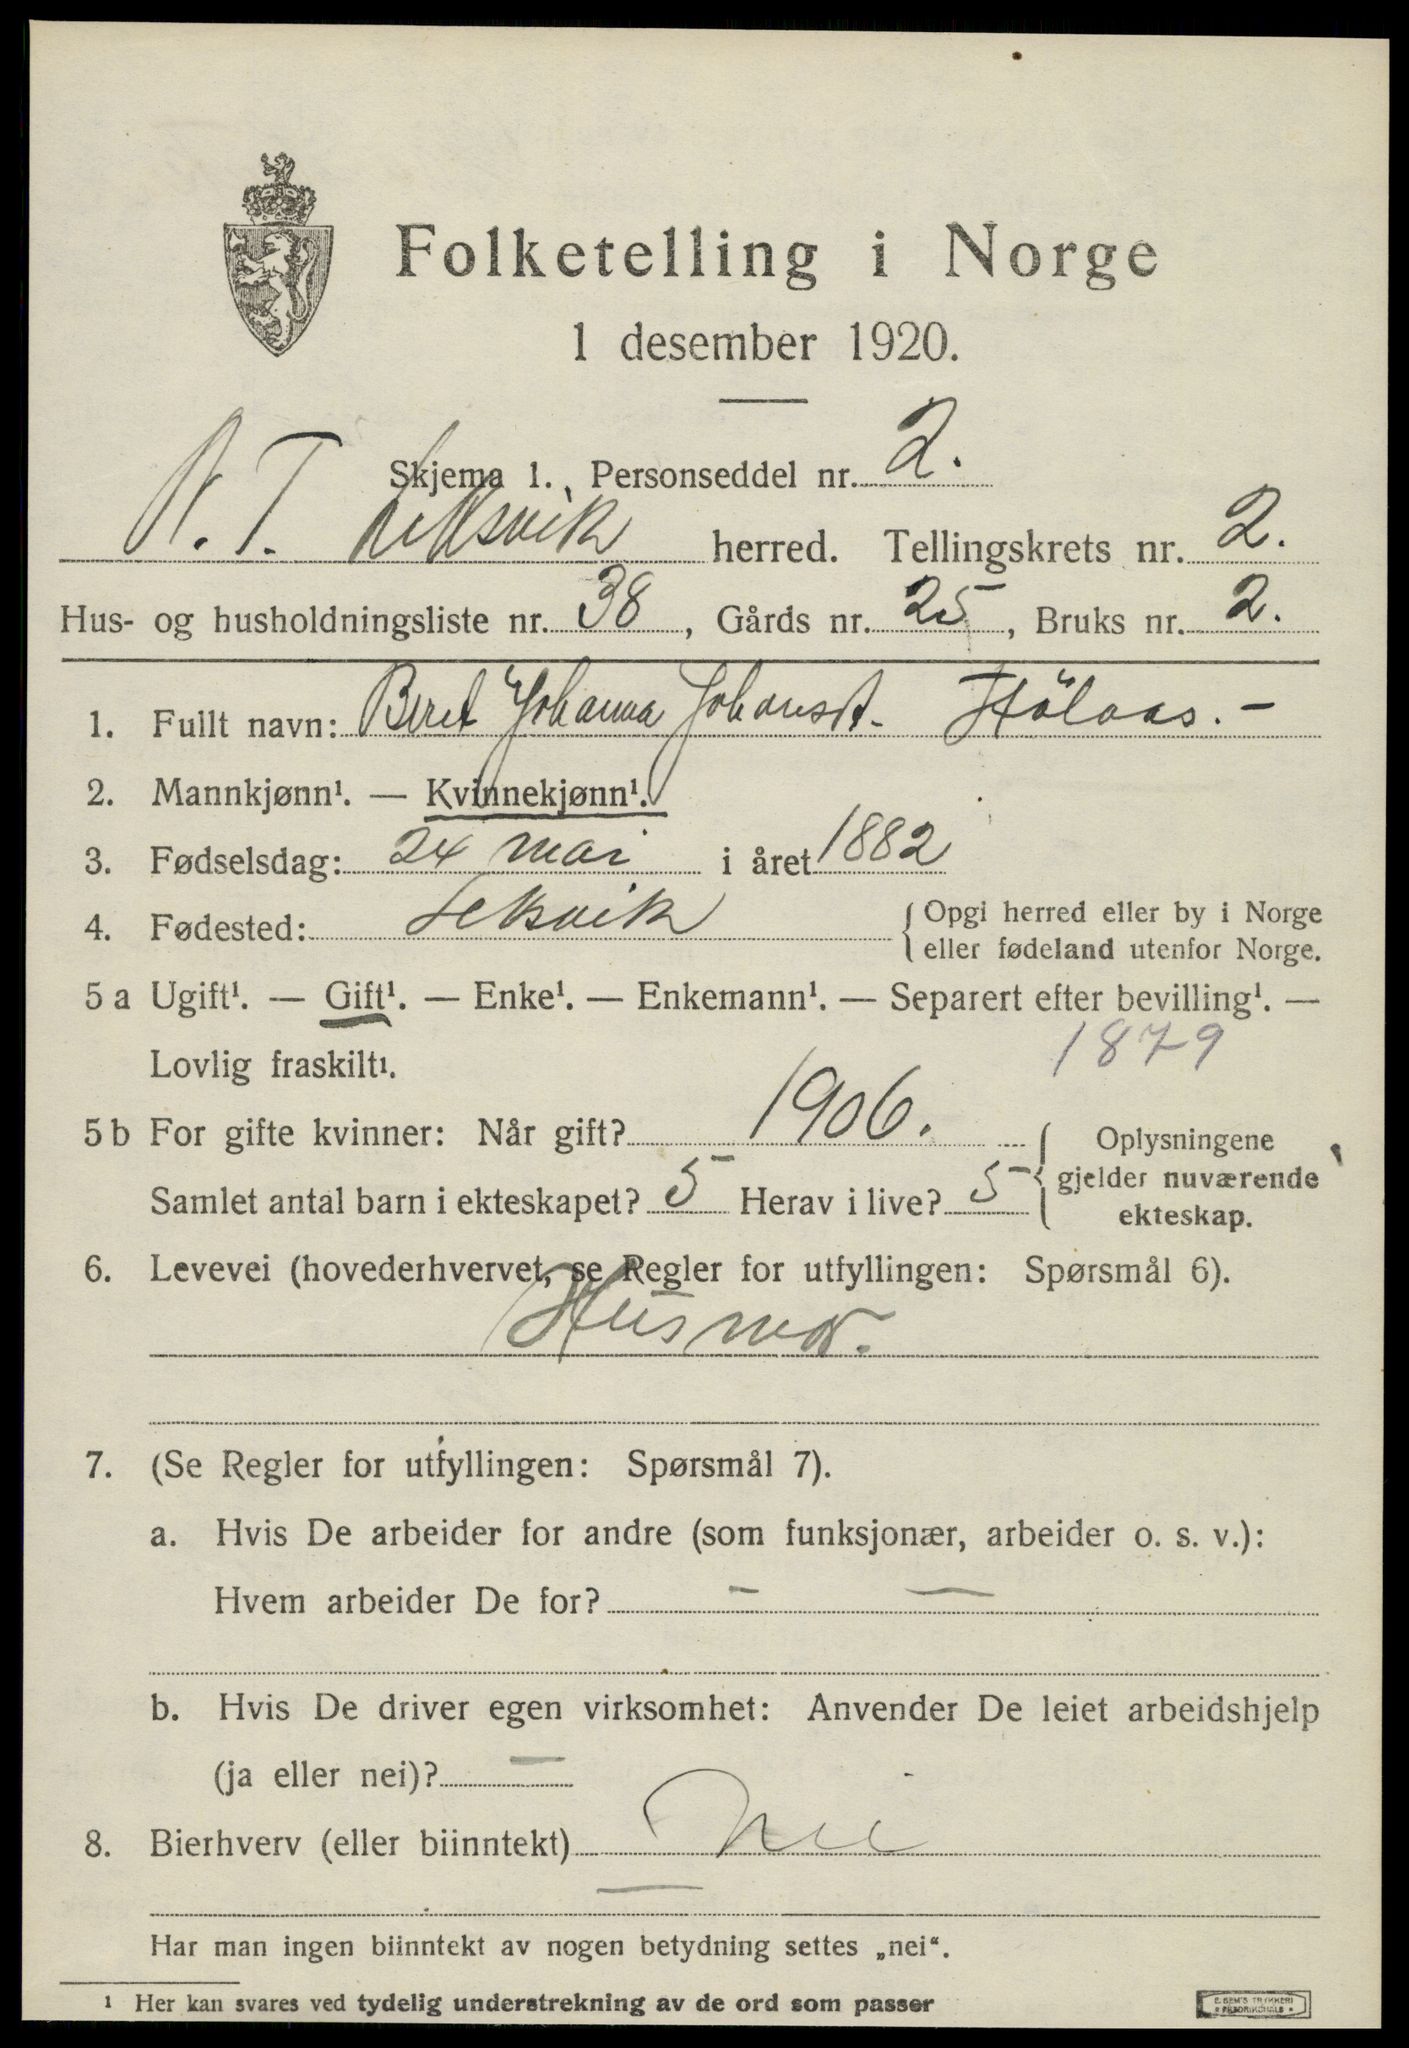 Folketelling i Norge
1 desember 1920.
Skjema 1. Personseddel nr. 2.
N. T. Leksvik herred. Tellingskrets nr. 2.
Hus- og husholdningsliste nr. 38, Gårds nr. 25, Bruks nr. 2.
1. Fullt navn: Beret Johanna Johansdt. Hölaas. -
2. Mannkjønn¹. — Kvinnekjønn¹.
3. Fødselsdag: 24 mai i året 1882
4. Fødested: Leksvik { Opgi herred eller by i Norge
eller fødeland utenfor Norge.
5 a Ugift¹. — Gift¹. — Enke¹. — Enkemann¹. — Separert efter bevilling¹. —
Lovlig fraskilt¹. 1879
5 b For gifte kvinner: Når gift? 1906. { Oplysningene
Samlet antal barn i ekteskapet? 5 Herav i live? 5 gjelder nuværende
ekteskap.
6. Levevei (hovederhvervet, se Regler for utfyllingen: Spørsmål 6).
Husmor.
7. (Se Regler for utfyllingen: Spørsmål 7).
a. Hvis De arbeider for andre (som funksjonær, arbeider o. s. v.):
Hvem arbeider De for? — —
b. Hvis De driver egen virksomhet: Anvender De leiet arbeidshjelp
(ja eller nei)? —
8. Bierhverv (eller biinntekt) Nei
—
Har man ingen biinntekt av nogen betydning settes „nei“.
¹ Her kan svares ved tydelig understrekning av de ord som passer
E. SEM'S TRYKKERI
FREDRIKSHALD